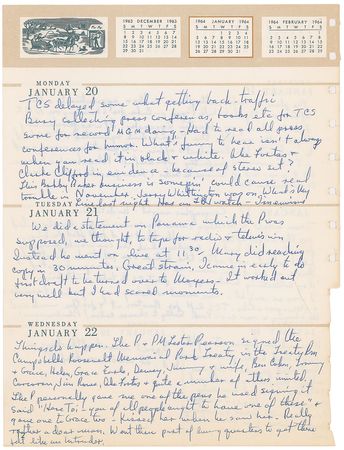 1963 DECEMBER 1963
S M T W T F S
1 2 3 4 5 6 7
8 9 10 11 12 13 14
15 16 17 18 19 20 21
22 23 24 25 26 27 28
29 30 31
1964 JANUARY 1964
S M T W T F S
1 2 3 4
5 6 7 8 9 10 11
12 13 14 15 16 17 18
19 20 21 22 23 24 25
26 27 28 29 30 31
1964 FEBRUARY 1964
S M T W T F S
1
2 3 4 5 6 7 8
9 10 11 12 13 14 15
16 17 18 19 20 21 22
23 24 25 26 27 28 29
MONDAY
JANUARY 20
TCS delayed some what getting back - traffic
Busy collecting press conferences, books etc for TCS
some for second MGM doing - Had to read all press
conferences for humor. What's funny to hear isn't always
when you read it in black & white. Abe Fortas &
Clark Clifford in evidence - because of stereo set?
This Bobby Baker business is somepin could cause real
trouble in November.
line last night. Has on LBJ watch -
TUESDAY
JANUARY 21
We did a statement on Panama which the Pres
supposed, we thought, to tape for radio & television
Instead he went on live at 11:30. Mary did reading
copy in 30 minutes. Great strain, I came in early to do
first draft to be turned over to Moyers - It worked out
very well but I had scared moments.
WEDNESDAY
JANUARY 22
Things do happen. The P & PM Lester Pearson signed the
Campobello Roosevelt Memorial Park Treaty in the Treaty Rm
& Grace, Helen, Grace Earle, Dewey, Jimmy & wife, Ben Cohen, Tommy
Corcoran, Jim Rowe, Abe Fortas & quite a number of others invited.
The P personally gave me one of the pens he used signing it
Said "Here Toi, you of all people ought to have one of these" &
gave one to Grace too - kissed her when he saw her. Really
rather a dear man. Went thru part of living quarters to get there
felt like an intruder.